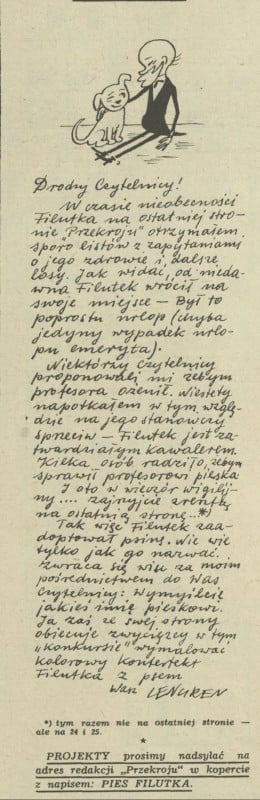 Drodzy Czytelnicy!
W czasie nieobecności
Filutka na ostatniej stro-
nie "Przekroju" otrzymałem
sporo listów z zapytaniami
o jego zdrowie i dalsze
losy. Jak widać, od nieda-
wna Filutek wrócił na
swoje miejsce — Był to
poprostu urlop (chyba
jedyny wypadek urlo-
pu emeryta).
Niektórzy czytelnicy
proponowali mi żebym
profesora ożenił. Niestety
napotkałem w tym wzglę-
dzie na jego stanowczy
sprzeciw — Filutek jest za-
twardziałym kawalerem.
Kilka osób radziło, żebym
sprawił profesorowi pieska
I oto w wieczór wigilij-
ny... zajrzyjcie zresztą
na ostatnią stronę...*)
Tak więc Filutek zaa-
doptował psinę. Nie wie
tylko jak go nazwać.
Zwraca się więc za moim
pośrednictwem do Was
Czytelnicy: Wymyślcie
jakieś imię pieskowi.
Ja zaś ze swej strony
obiecuję zwycięzcy w tym
"konkursie" wymalować
kolorowy kontertekt
Filutka z psem
Wasz LENGREN
*) tym razem nie na ostatniej stronie —
ale na 24 i 25.
*
PROJEKTY prosimy nadsyłać na
adres redakcji „Przekroju" w kopercie
z napisem: PIES FILUTKA.